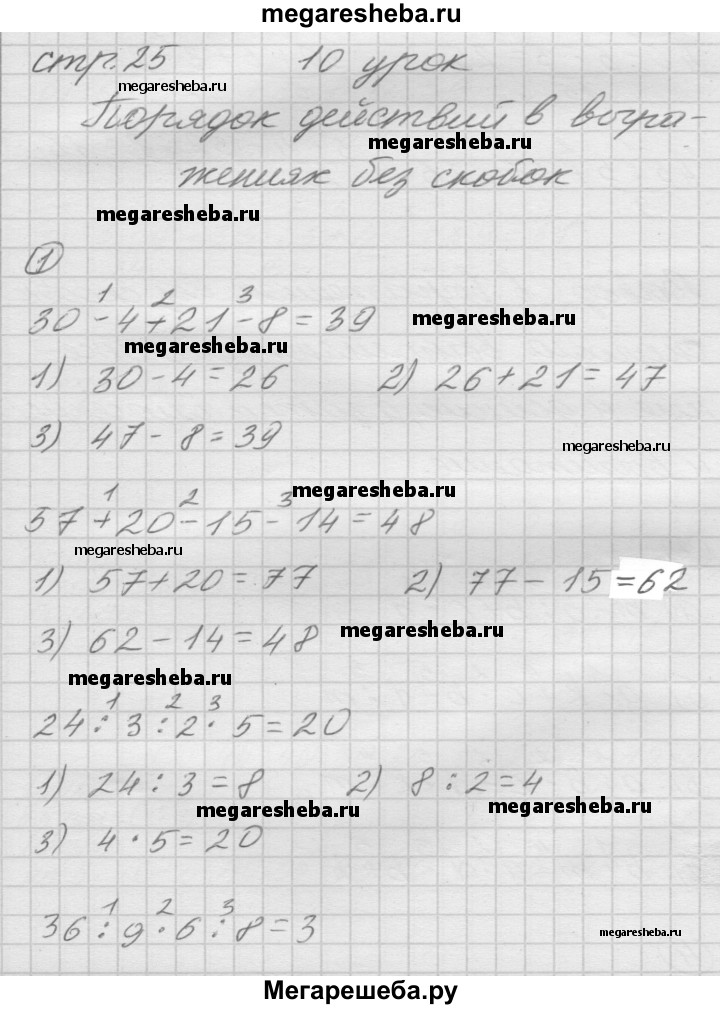 megaresheba.ru
стр. 25 10 урок
megaresheba.ru
Порядок действий в выра-
megaresheba.ru
жениях без скобок
megaresheba.ru
1
1 2 3
30 - 4 + 21 - 8 = 39 megaresheba.ru
megaresheba.ru
1) 30 - 4 = 26 2) 26 + 21 = 47
3) 47 - 8 = 39
megaresheba.ru
1 2 3 megaresheba.ru
57 + 20 - 15 - 14 = 48
megaresheba.ru
1) 57 + 20 = 77 2) 77 - 15 = 62
3) 62 - 14 = 48 megaresheba.ru
megaresheba.ru
1 2 3
24 : 3 : 2 · 5 = 20
1) 24 : 3 = 8 2) 8 : 2 = 4
megaresheba.ru megaresheba.ru
3) 4 · 5 = 20
1 2 3
36 : 9 · 6 : 8 = 3 megaresheba.ru
Мегарешеба.ру